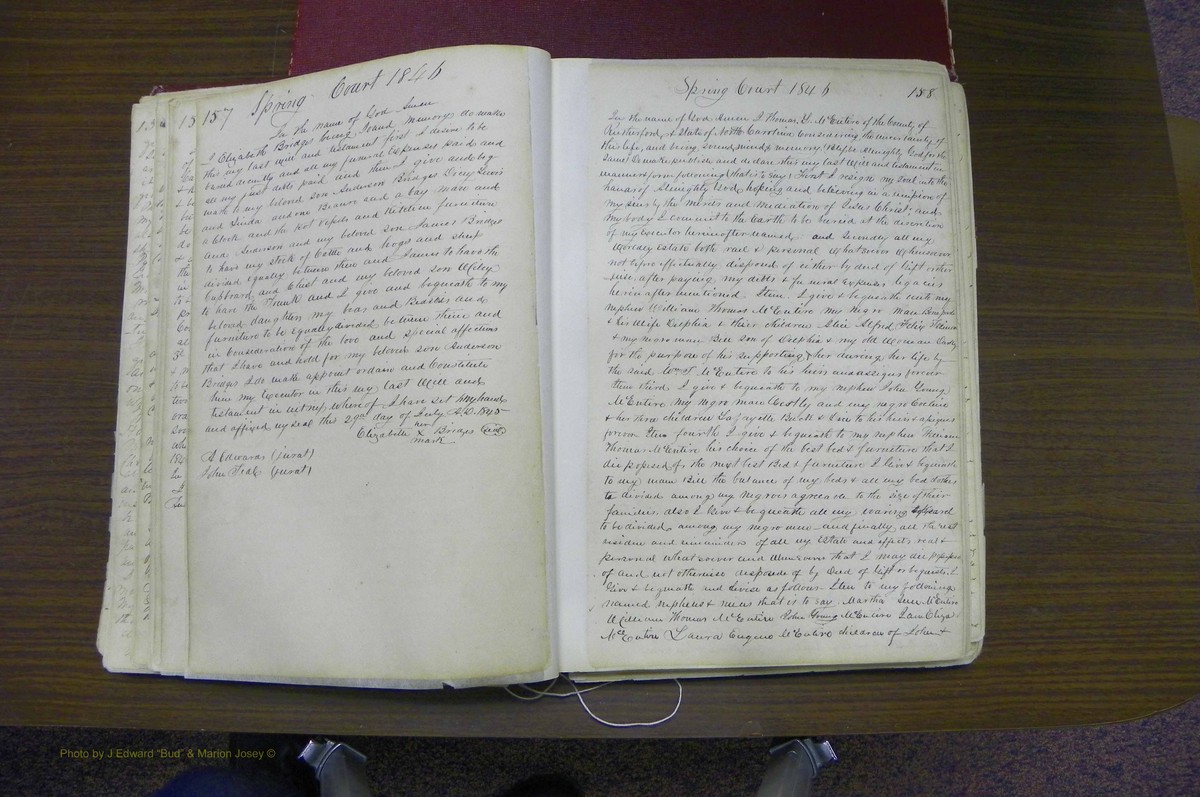 157 Spring Court 1846
In the name of God Amen
I Elizabeth Bridges being sound memory do make
this my last will and testament first I desire to be
buried decently and all my funeral expenses paid and
all my just debts paid and then I give and beq
ueath to my beloved son Anderson Bridges
and Linda and one Bureau and a bay mare and
a clock and the pot vessels and kitchen furniture
and Anderson and my beloved son James Bridges
to have my stock of Cattle and hogs and sheep
divided equally between them and James to have the
Cupboard and Chest and my beloved son
to have the Trunk and I give and bequeath to my
beloved daughters my beds and Bedsteds and
furniture to be equally divided between them and
in Consideration of the love and special affections
that I have and hold for my beloved son Anderson
Bridges I do make appoint ordain and Constitute
him my Executor in this my last Will and
testament in witness whereof I have set my hand
and affixed my seal this 29th day of July A.D. 1845
her
Elizabeth X Bridges (seal)
mark
A Edwards (jurat)
John Teal (jurat)
Spring Court 1846 158
In the name of God Amen I Thomas McEntire of the County of
Rutherford, & State of North Carolina Considering the uncertainty of
this life, and being sound mind & memory Blessed be Almighty God for the
Same Do make publish and declare this my last Will and testament in
manner & form following that is to say: First I resign my Soul into the
hands of Almighty God, hoping and believing in a remission of
my sins by the merits and mediation of Jesus Christ; and
my body I commit to the Earth to be buried at the discretion
of my Executor hereinafter named and Secondly all my
Worldly Estate both real & personal whatsoever & wheresoever
not before effectually disposed of either by deed of Gift other
wise, after paying my debts & funeral expenses legacies
herein after mentioned. Item. I give & bequeath unto my
nephew William Thomas McEntire my Negro man
& his Wife Delphia & their children Alfred
& my negro man Bill son of Delphia & my old Woman
for the purpose of his supporting her during her life by
the said Wm. T. McEntire to his heirs and assigns forever
Item third I give & bequeath to my nephew John Young
McEntire my Negro man and my negro
& her three children Lafayette to his heirs & assigns
forever Item fourth I give & bequeath to my nephew William
Thomas McEntire his choice of the best bed & furniture that I
die possessed of the next best Bed & furniture I Give & bequeath
to my man Bill the balance of my beds & all my bed clothes
to divided among my Negroes agreeable to the size of their
families. also I Give & bequeath all my wearing apparel
to be divided among my negro men and finally, all the rest
residue and remainders of all my Estate and effects real &
personal whatsoever and wheresoever that I may die possessed
of and not otherwise disposed of by Deed of Gift or bequests. I
Give & bequeath and devise as follows. Item to my following
named nephews & nieces that is to say. Martha McEntire
William Thomas McEntire John Young McEntire Jane Eliza
McEntire Laura Eugene McEntire children of John &
Photo by J Edward "Bud" & Marion Josey ©